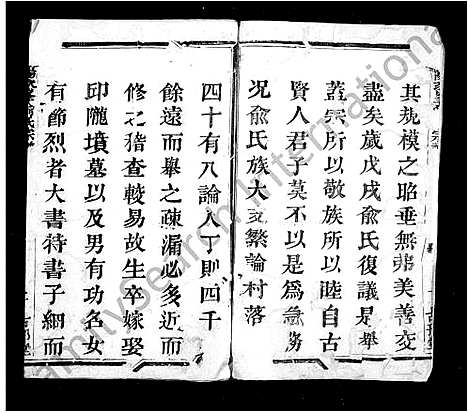 其規模之昭垂無弗美善交
盡矣歲戊戌兪氏復議是舉
蓋宗所以敬族所以睦自古
賢人君子莫不以是爲急務
况兪氏族大支繁論村落
四十有八論人丁則四千
餘遠而舉之疎漏必多近而
修之稽查較易故生卒嫁娶
邱隴墳墓以及男有功名女
有節烈者大書特書子細而
FamilySearch International